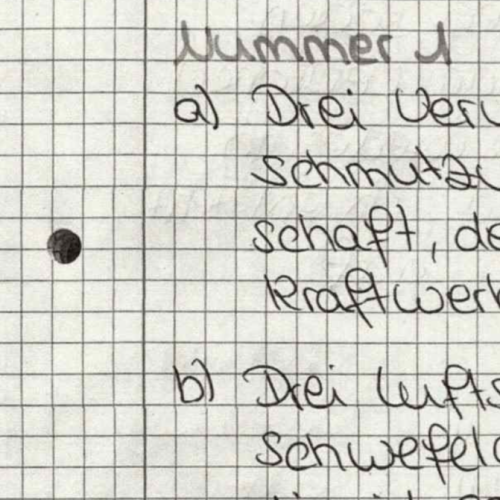 Nummer 1
a) Drei Ver
schmutz
schaft, de
kraftwerk
b) Drei lufts
schwefeld